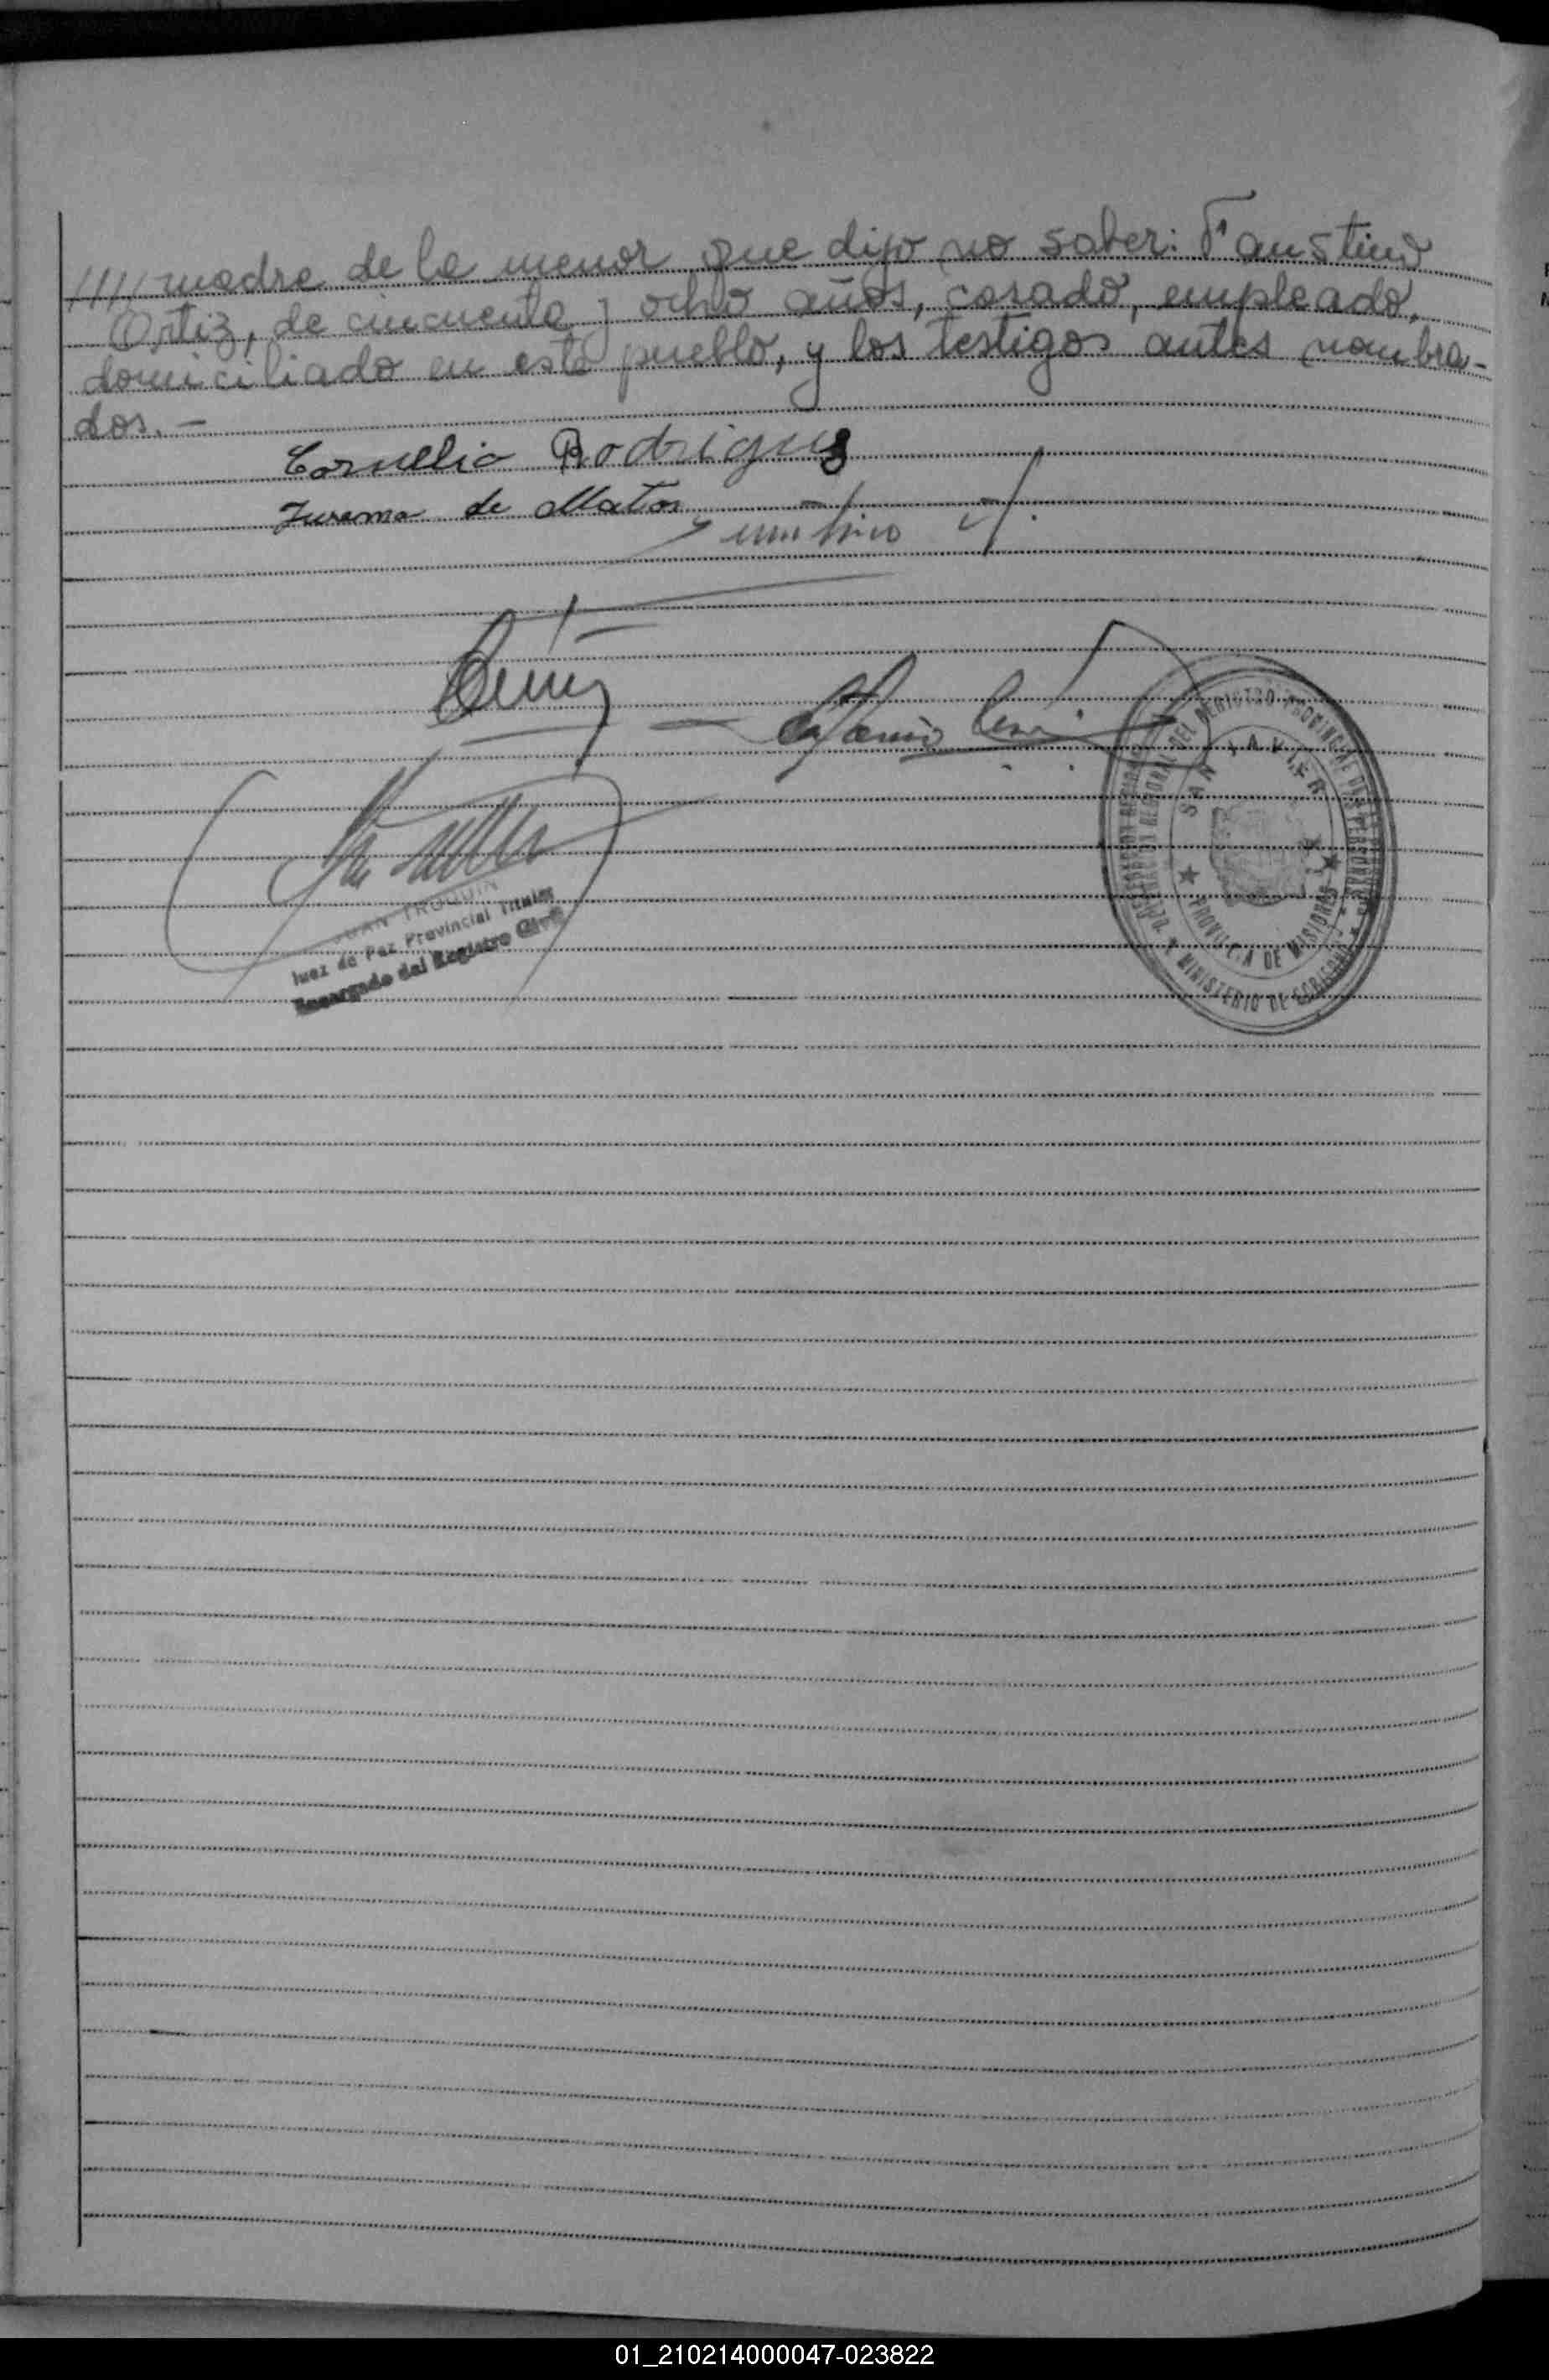 //// madre de la menor que dijo no saber: Faustino
Ortiz, de cincuenta y ocho años, casado, empleado,
domiciliado en este pueblo, y los testigos antes nombra-
dos.-
Cornelio Rodrigues
Jurema de Mattos
JUAN TROQUIN
Juez de Paz Provincial Titular
Encargado del Registro Civil
REGISTRO PROVINCIAL DE LAS PERSONAS
SAN JAVIER
PROVINCIA DE MISIONES
MINISTERIO DE GOBIERNO
01_210214000047-023822